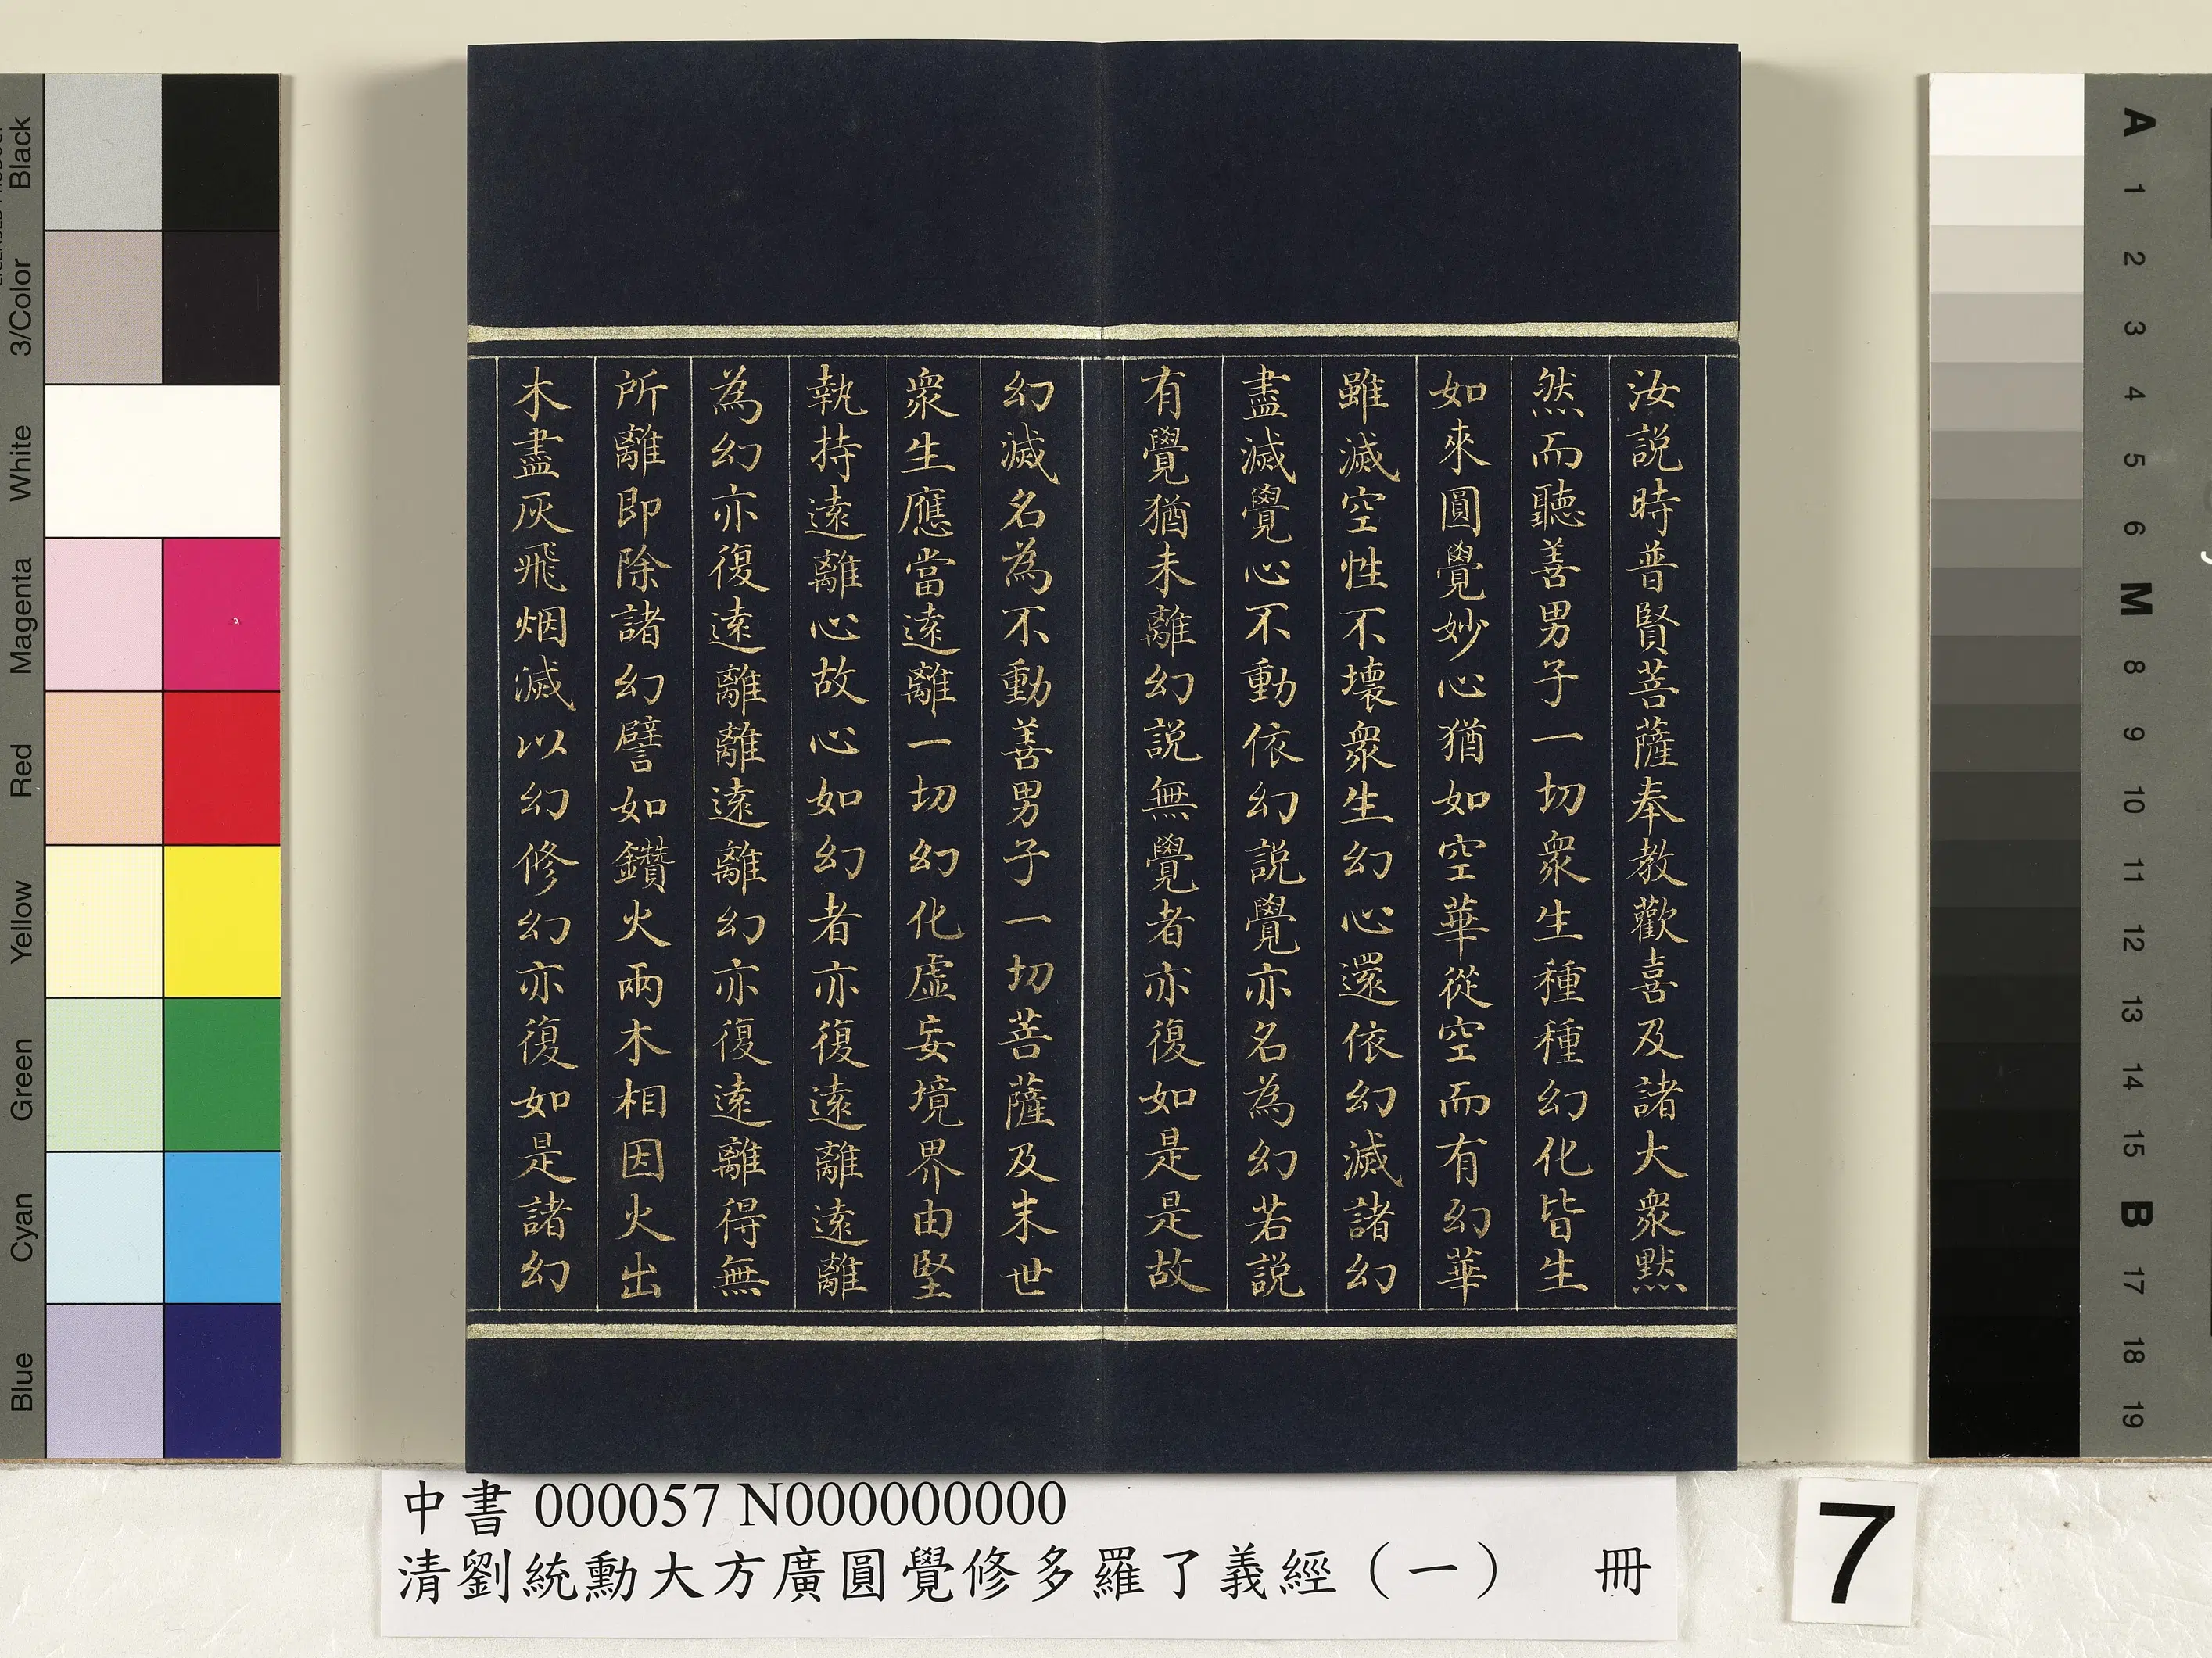 汝說時普賢菩薩奉教歡喜及諸大衆黙
然而聽善男子一切衆生種種幻化皆生
如來圓覺妙心猶如空華從空而有幻華
雖滅空性不壞衆生幻心還依幻滅諸幻
盡滅覺心不動依幻說覺亦名為幻若說
有覺猶未離幻說無覺者亦復如是是故
幻滅名為不動善男子一切菩薩及末世
衆生應當遠離一切幻化虛妄境界由堅
執持遠離心故心如幻者亦復遠離遠離
為幻亦復遠離離遠離幻亦復遠離得無
所離即除諸幻譬如鑽火兩木相因火出
木盡灰飛烟滅以幻修幻亦復如是諸幻
中書 000057 N000000000
清劉統勳大方廣圓覺修多羅了義經（一） 冊
7
Black
3/Color
White
Magenta
Red
Yellow
Green
Cyan
Blue
A
1
2
3
4
5
6
M
8
9
10
11
12
13
14
15
B
17
18
19